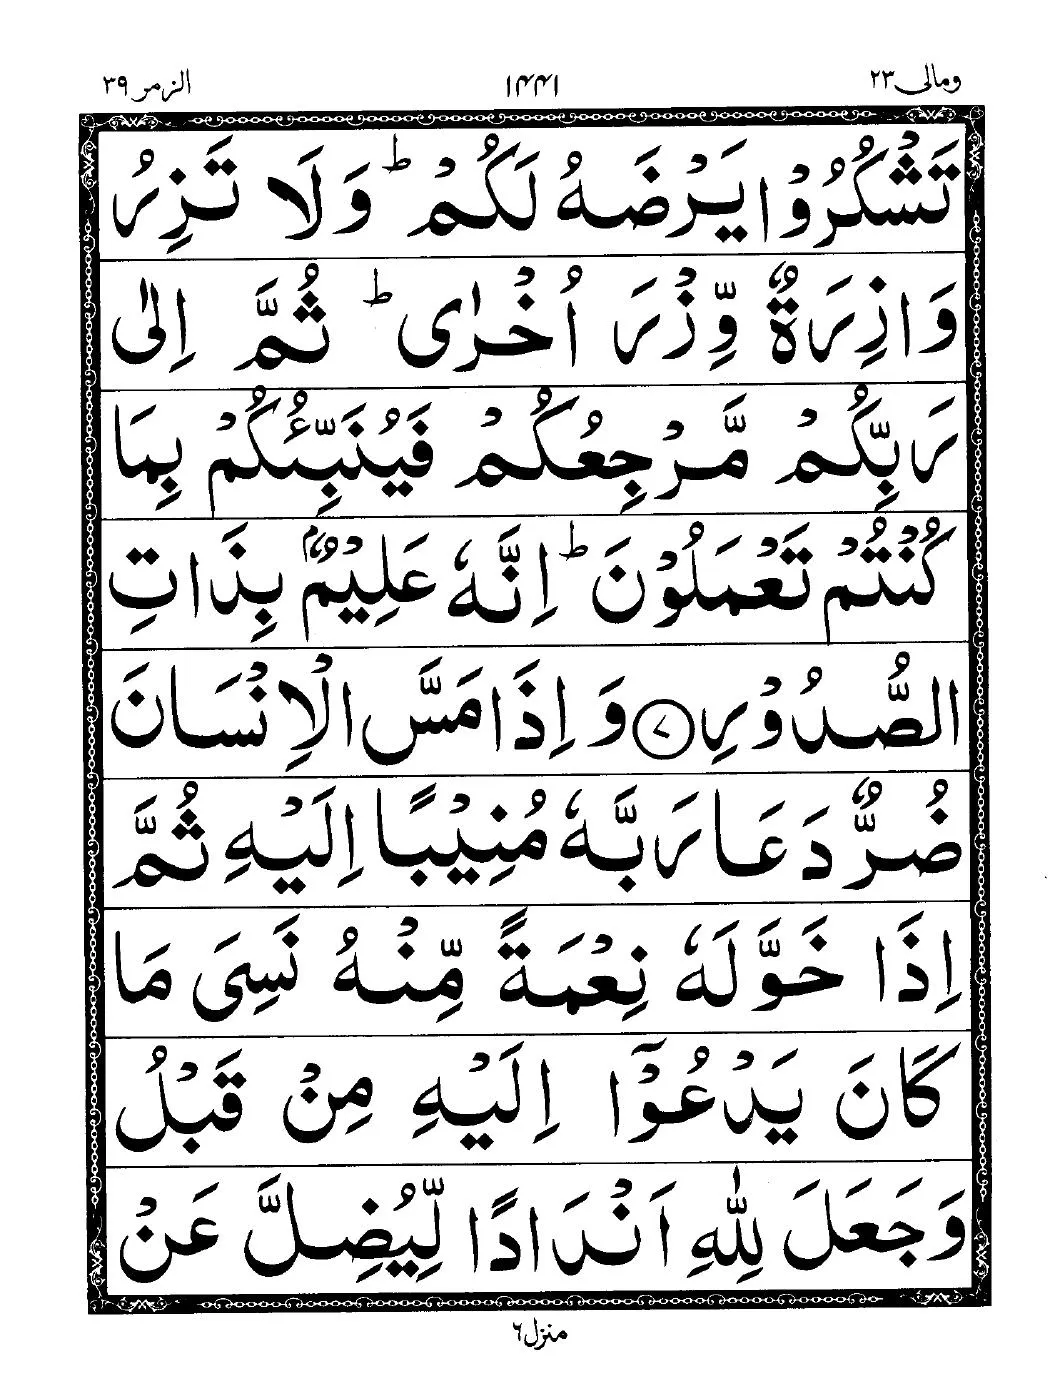 ومالی ٢٣ ١٤٤١ الزمر ٣٩
تَشْكُرُوْا يَرْضَهُ لَكُمْ ؕ وَلَا تَزِرُ
وَازِرَةٌ وِّزْرَ اُخْرٰى ؕ ثُمَّ اِلٰى
رَبِّكُمْ مَّرْجِعُكُمْ فَيُنَبِّئُكُمْ بِمَا
كُنْتُمْ تَعْمَلُوْنَ ؕ اِنَّهٗ عَلِيْمٌۢ بِذَاتِ
الصُّدُوْرِ ۝٧ وَاِذَا مَسَّ الْاِنْسَانَ
ضُرٌّ دَعَا رَبَّهٗ مُنِيْبًا اِلَيْهِ ثُمَّ
اِذَا خَوَّلَهٗ نِعْمَةً مِّنْهُ نَسِىَ مَا
كَانَ يَدْعُوْٓا اِلَيْهِ مِنْ قَبْلُ
وَجَعَلَ لِلّٰهِ اَنْدَادًا لِّيُضِلَّ عَنْ
منزل ٦